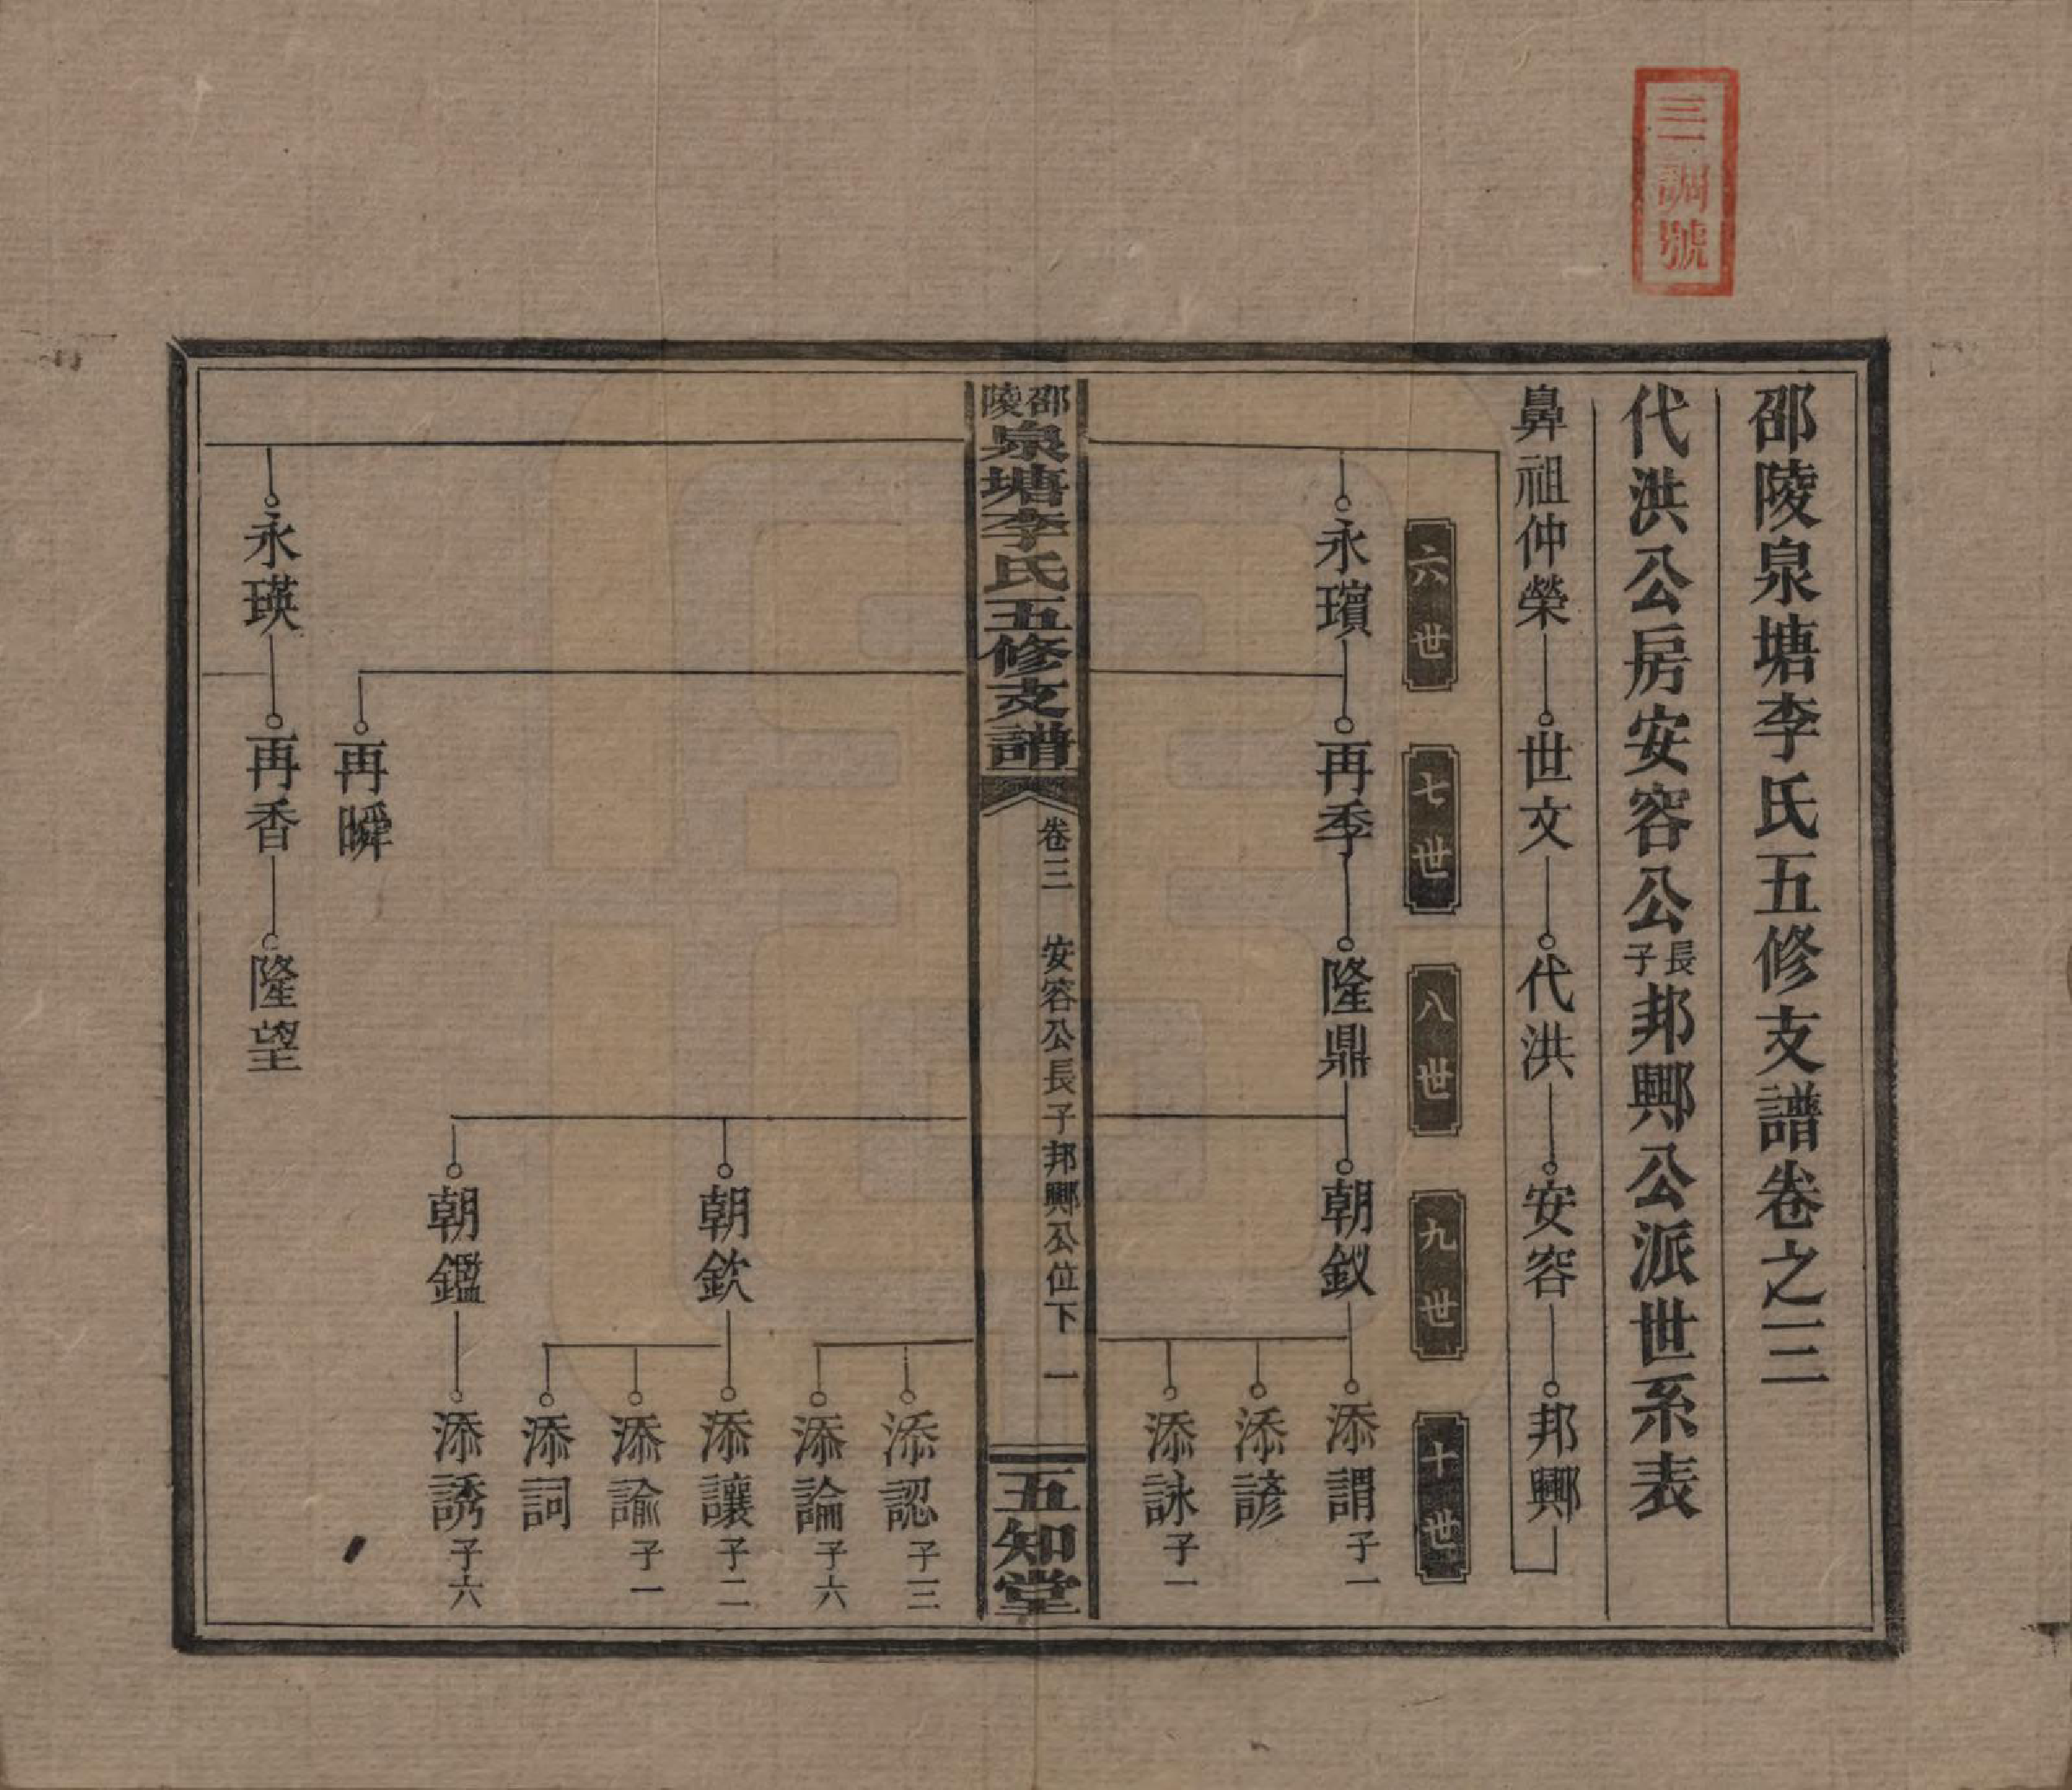 三調號
邵陵泉塘李氏五修支譜卷之三
代洪公房安容公長子邦鄹公派世系表
鼻祖仲榮 世文 代洪 安容 邦鄹
六世 七世 八世 九世 十世
永璸 再季 隆鼎 朝釵 添謂 子一
添諺
添詠 子一
邵陵泉塘李氏五修支譜 卷三 安容公長子邦鄹公位下 一 五知堂
添認 子三
添論 子六
朝欽 添讓 子二
添諭 子一
添詞
朝鑑 添誘 子六
再瞬
永瑛 再香 隆望